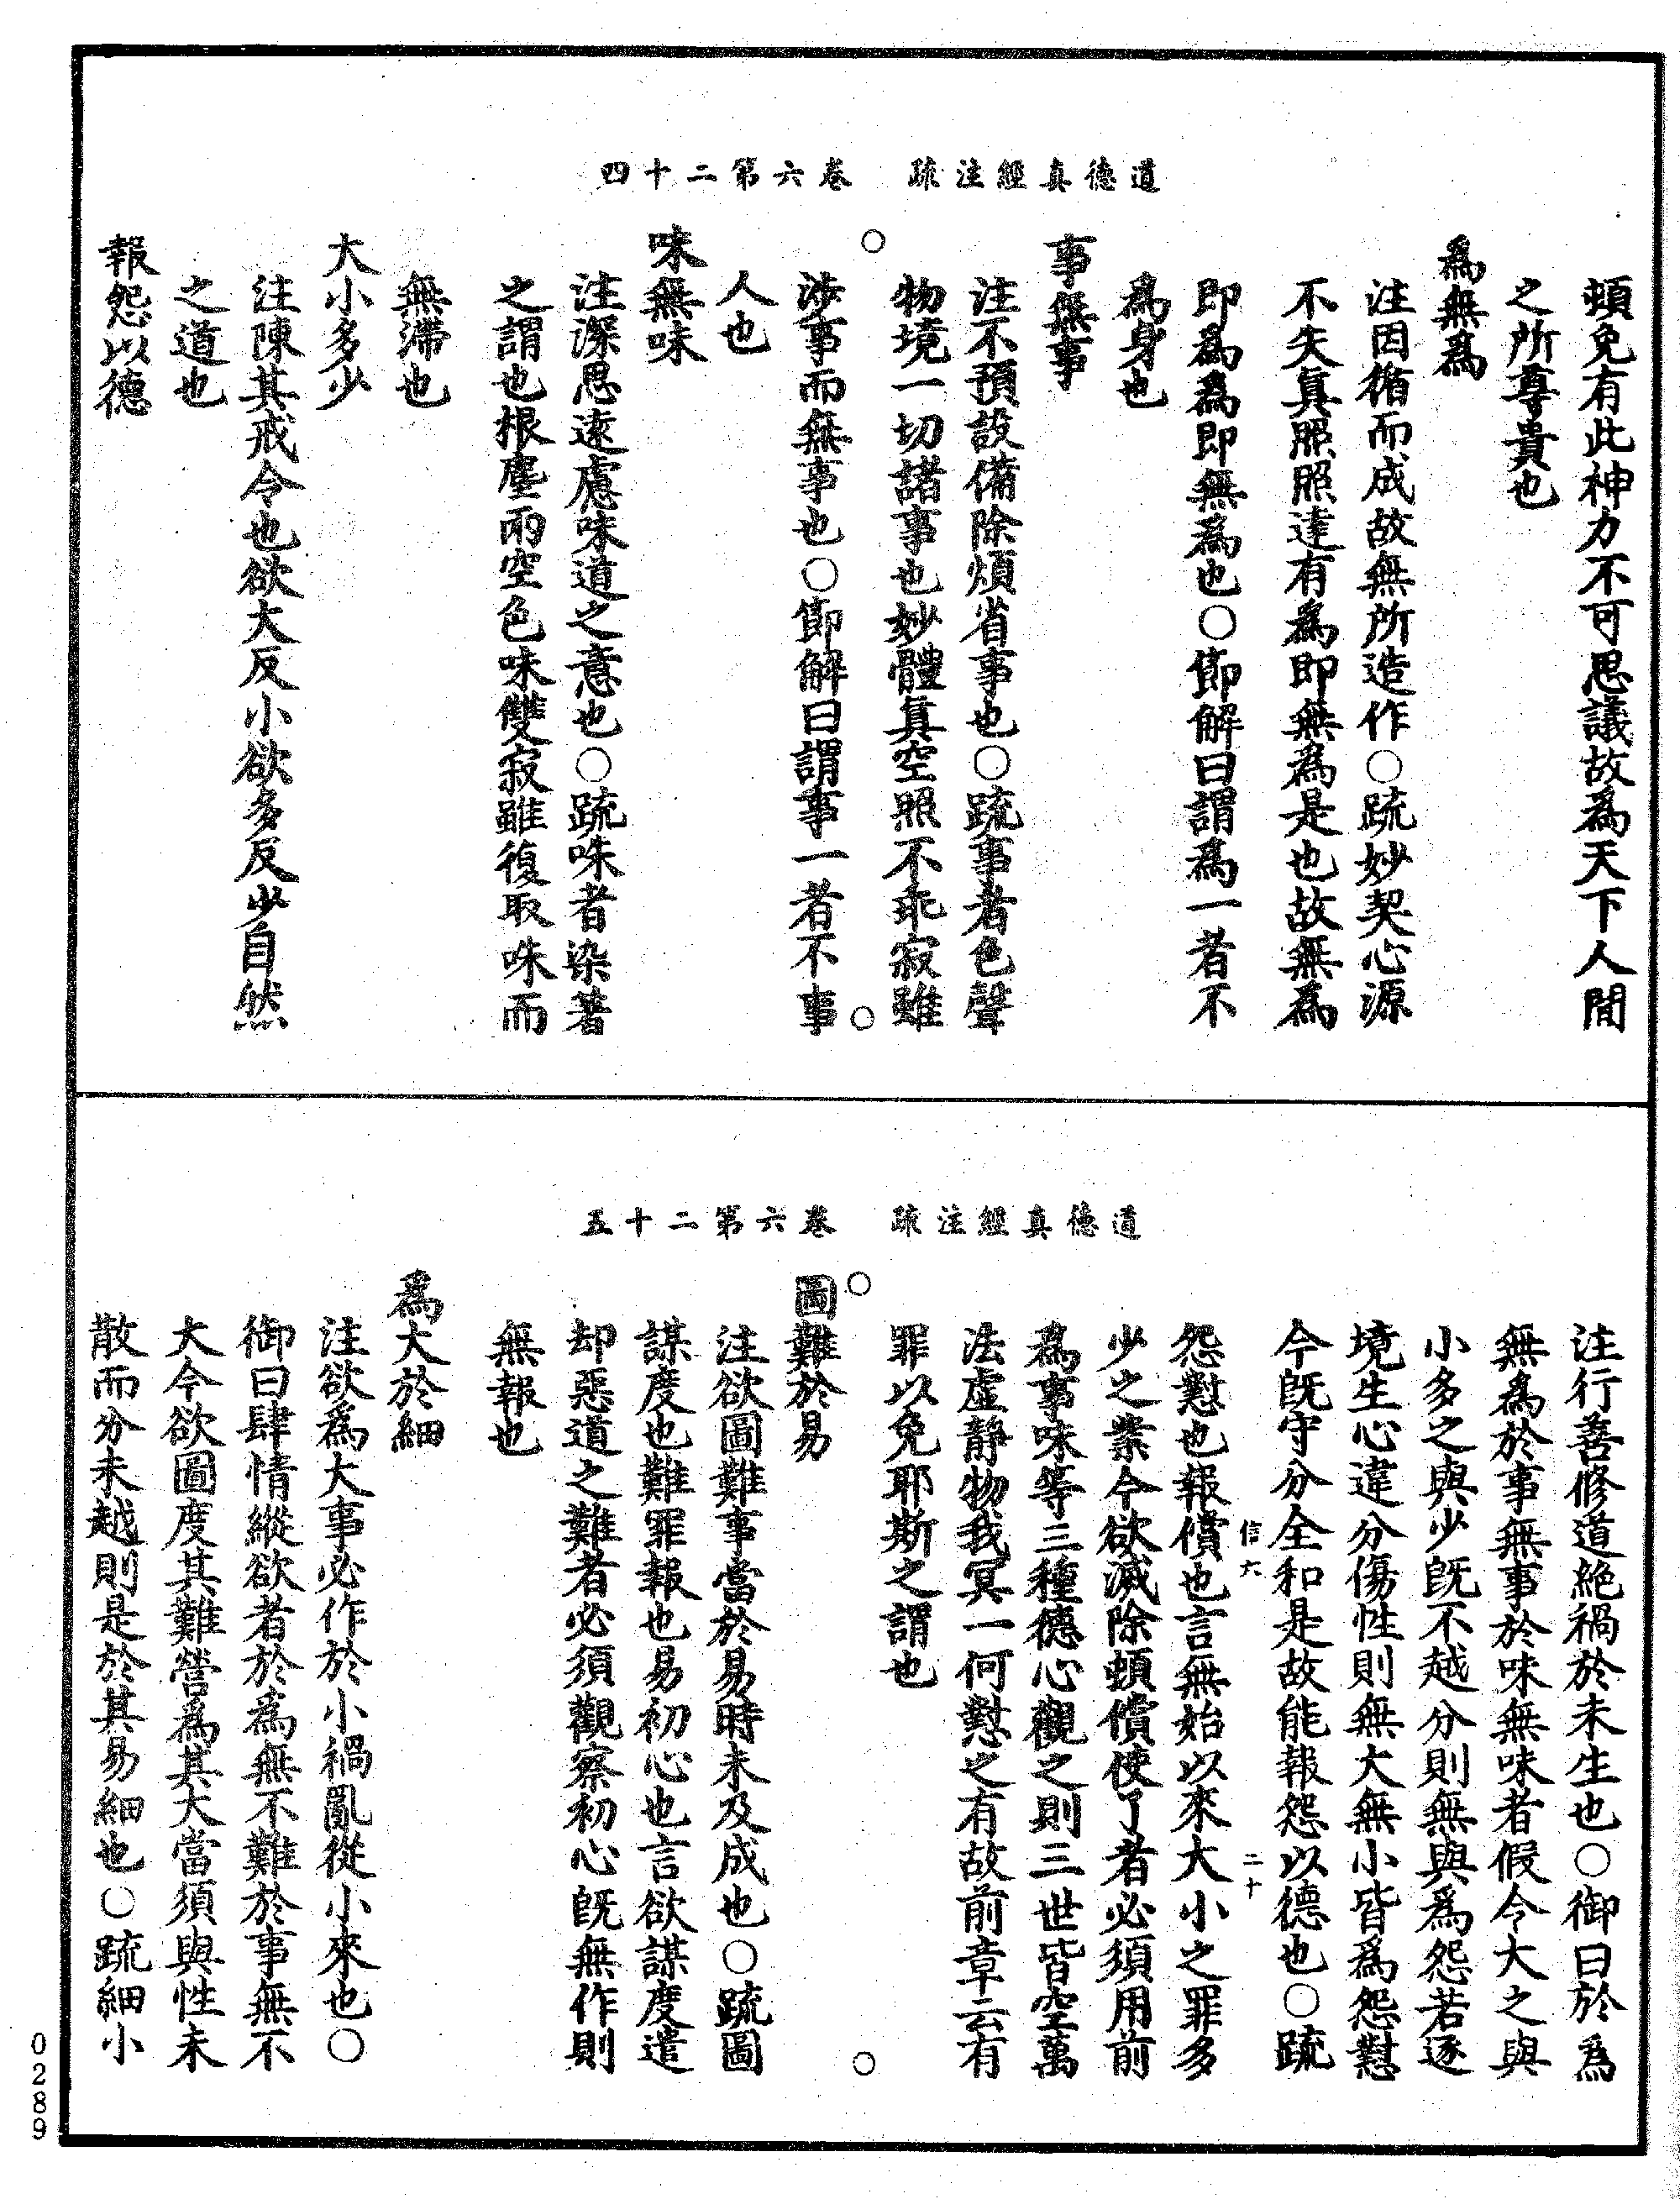 道德真經注疏　卷六第二十四
頓免有此神力不可思議故為天下人間
之所尊貴也
為無為
注因循而成故無所造作○疏妙契心源
不失真照照達有為即無為是也故無為
即為為即無為也○節解曰謂為一者不
為身也
事無事
注不預設備除煩省事也○疏事者色聲
物境一切諸事也妙體真空照不乖寂雖
涉事而無事也○節解曰謂事一者不事
人也
味無味
注深思遠慮味道之意也○疏味者染著
之謂也根塵兩空色味雙寂雖復取味而
無滯也
大小多少
注陳其戒令也欲大反小欲多反少自然
之道也
報怨以德
道德真經注疏　卷六第二十五
注行善修道絕禍於未生也○御曰於為
無為於事無事於味無味者假令大之與
小多之與少既不越分則無與為怨若逐
境生心違分傷性則無大無小皆為怨懟
今既守分全和是故能報怨以德也○疏
信六　二十
怨懟也報償也言無始以來大小之罪多
少之業今欲滅除頓償使了者必須用前
為事味等三種德心觀之則三世皆空萬
法虛靜物我冥一何懟之有故前章云有
罪以免耶斯之謂也
圖難於易
注欲圖難事當於易時未及成也○疏圖
謀度也難罪報也易初心也言欲謀度遣
却惡道之難者必須觀察初心既無作則
無報也
為大於細
注欲為大事必作於小禍亂從小來也○
御曰肆情縱欲者於為無不難於事無不
大今欲圖度其難營為其大當須與性未
散而分未越則是於其易細也○疏細小
0289